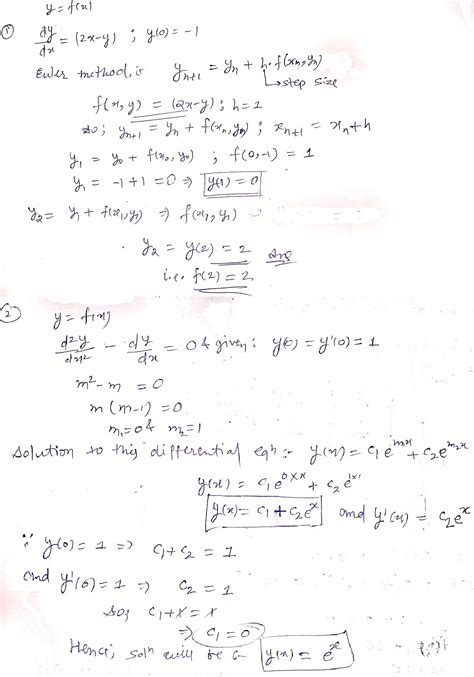 y = f(x)
① dy/dx = (2x-y) ; y(0) = -1
Euler method, is yn+1 = yn + h·f(xn, yn)
↳ step size
f(x, y) = (2x-y) ; h=1
so; yn+1 = yn + f(xn, yn) ; xn+1 = xn+h
y1 = y0 + f(x0, y0) ; f(0,-1) = 1
y1 = -1+1 = 0 ⇒ y(1) = 0
y2 = y1 + f(x1, y1) ⇒ f(x1, y1)
y2 = y(2) = 2 Ans
i.e. f(2) = 2
② y = f(x)
d²y/dx² - dy/dx = 0 & given: y(0) = y'(0) = 1
m²-m = 0
m(m-1) = 0
m1=0 & m2=1
Solution to this differential eqn :- y(x) = c1 e^m1x + c2 e^m2x
y(x) = c1 e^0×x + c2 e^1x
y(x) = c1 + c2 e^x and y'(x) = c2 e^x
∵ y(0) = 1 ⇒ c1+c2 = 1
and y'(0) = 1 ⇒ c2 = 1
so; c1+1 = 1
⇒ c1 = 0
Hence, soln will be y(x) = e^x